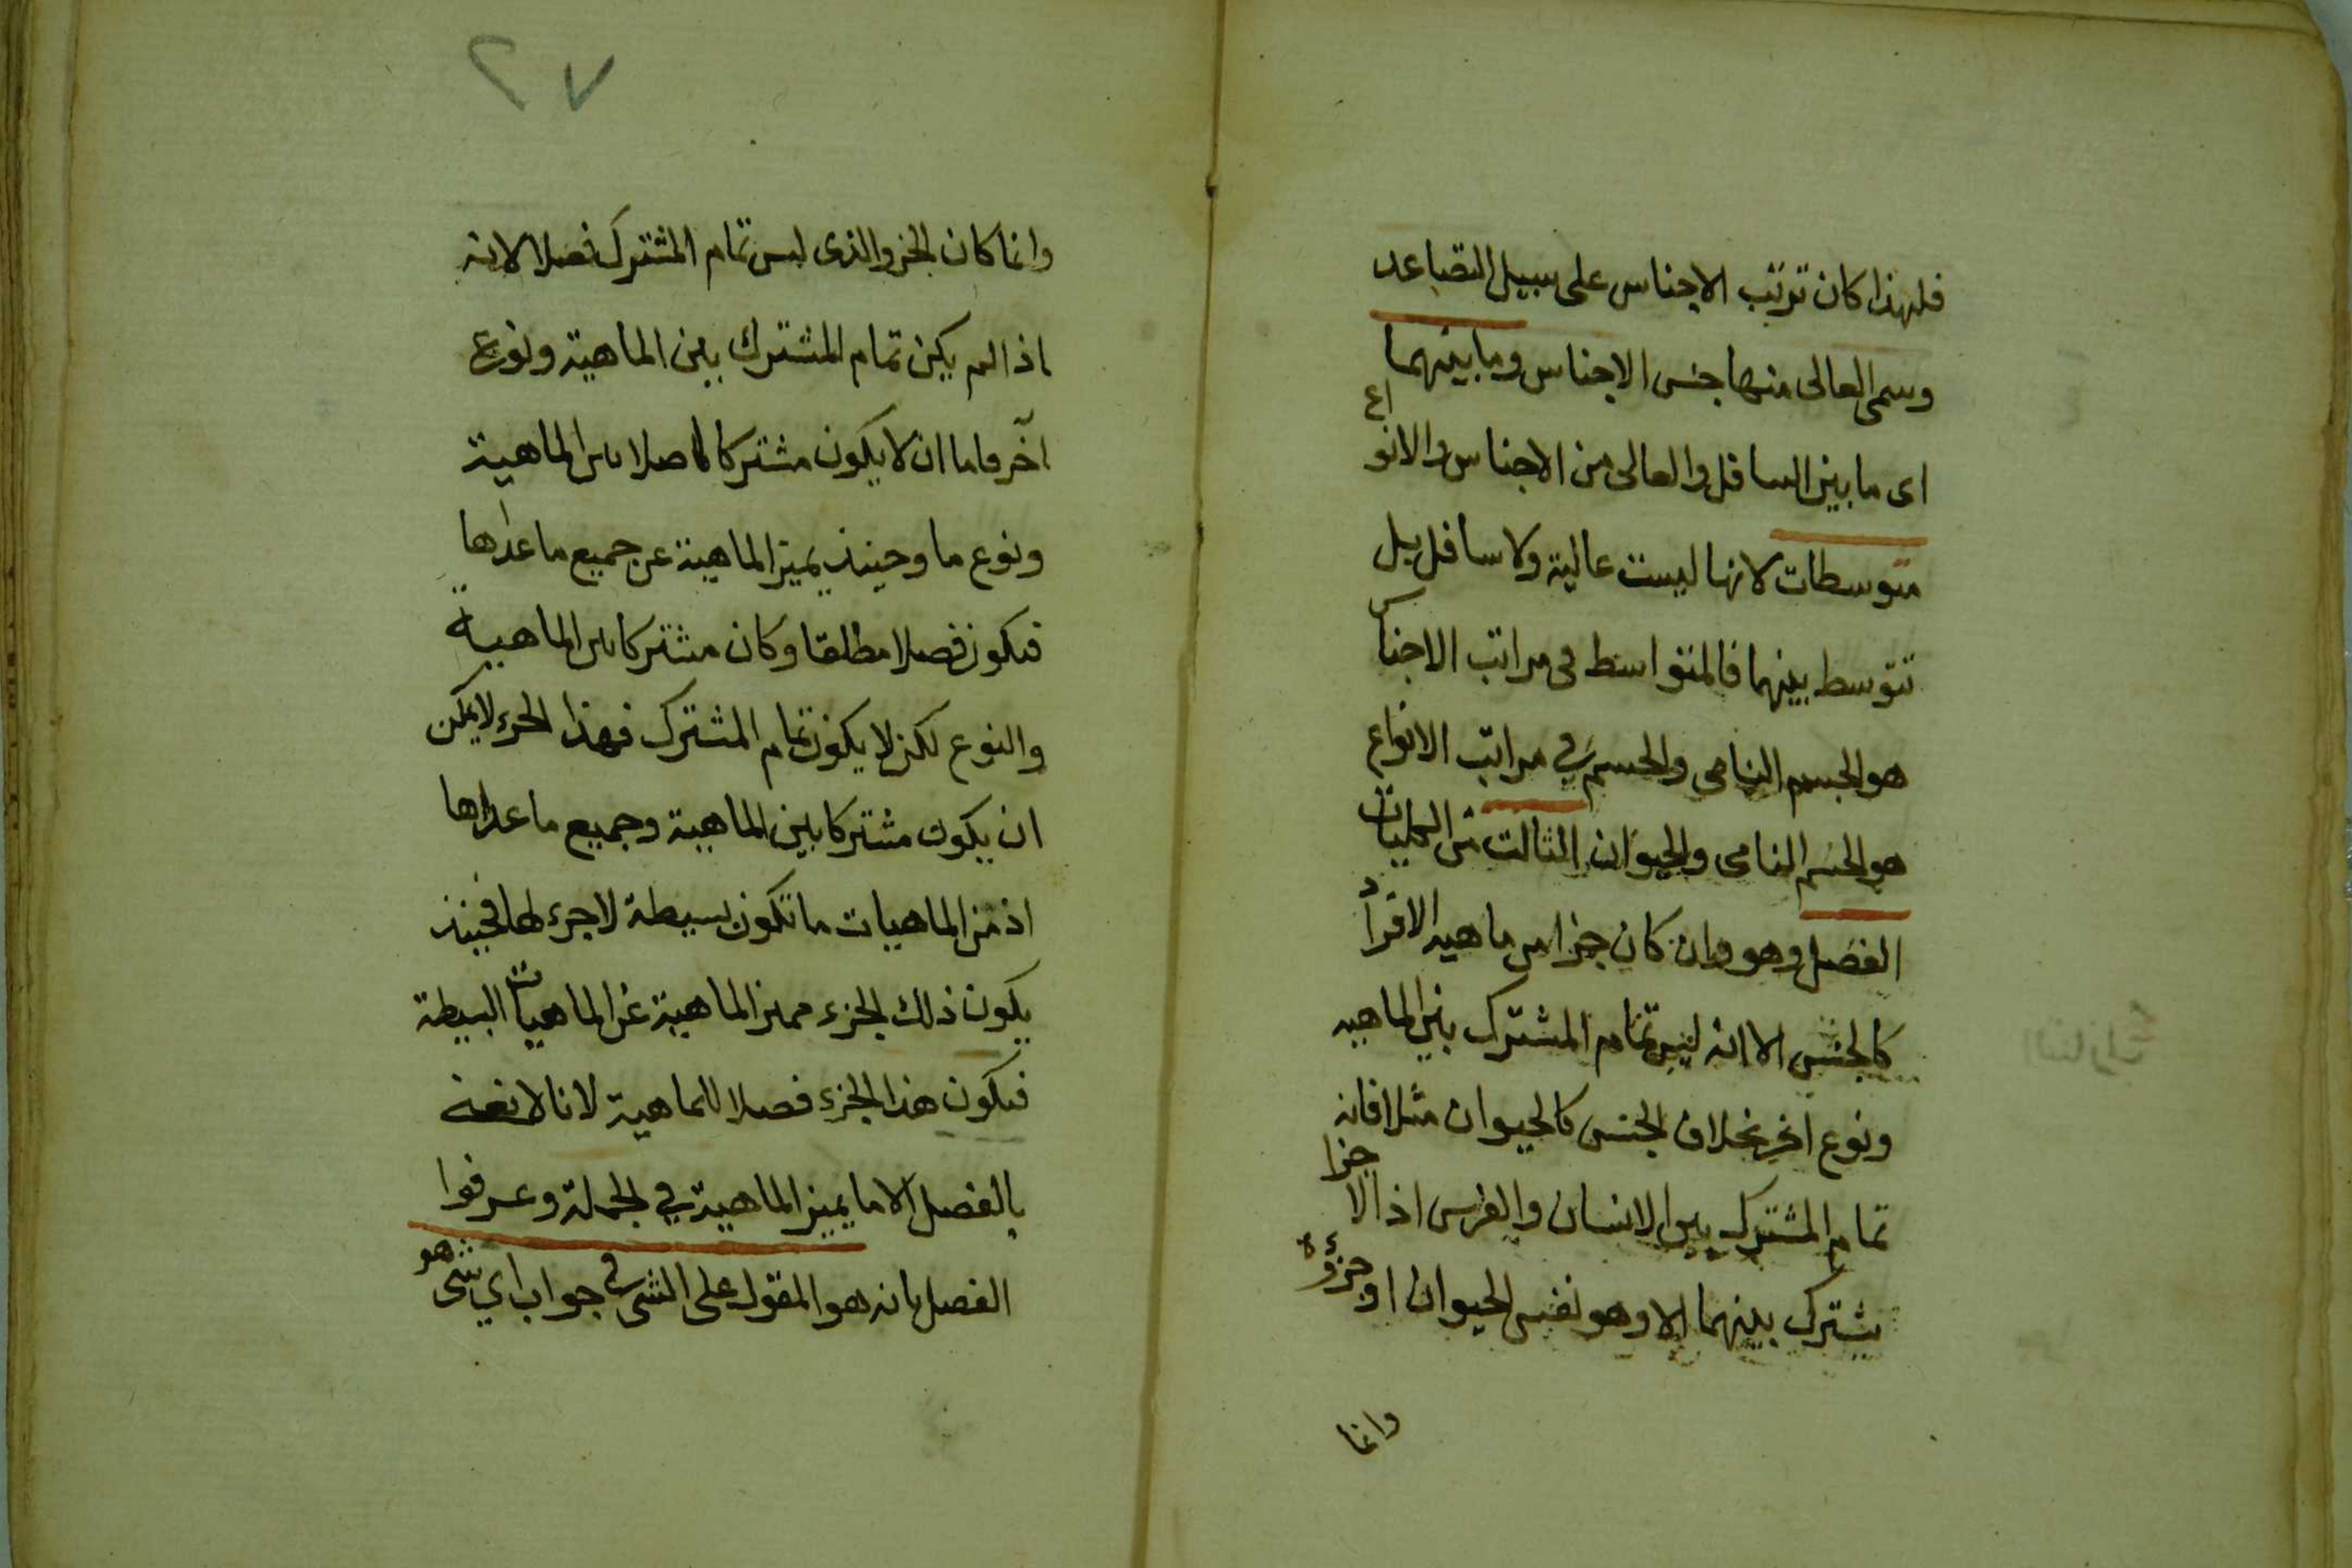 فلهذا كان ترتب الاجناس على سبيل التصاعد
وسمى العالى منها جنس الاجناس وما بينهما
اى ما بين السافل والعالى من الاجناس والانواع
متوسطات لانها ليست عالية ولا سافل بل
تتوسط بينهما فالمتواسط فى مراتب الاجناس
هو الجسم النامى والجسم في مراتب الانواع
هو الجسم النامى والحيوان الثالث من الكليات
الفصل وهو وان كان جزا من ماهية الافراد
كالجنس الا انه ليس تمام المشترك بين الماهيه
ونوع اخر بخلاف الجنس كالحيوان مثلا فانه
تمام المشترك بين الانسان والفرس اذ لا جزا
يشترك بينهما الا وهو نفس الحيوان او جزؤه
وانما
٢٧
وانما كان الجزو الذى ليس تمام المشترك فصلا لانه
اذا لم يكن تمام المشترك بين الماهية ونوع
آخر فاما ان لا يكون مشتركا اصلا بين الماهية
ونوع ما وحينئذ يميز الماهية عن جميع ما عداها
فيكون فصلا مطلقا وكان مشتركا بين الماهية
والنوع لكن لا يكون تمام المشترك فهذا الجزء لا يمكن
ان يكون مشتركا بين الماهية وجميع ما عداها
اذ من الماهيات ما تكون بسيطة لا جزء لها فحينئذ
يكون ذلك الجزء مميز الماهية عن الماهيات البسيطة
فيكون هذا الجزء فصلا للماهية لانا لا نعنى
بالفصل الا ما يميز الماهية في الجملة وعرفوا
الفصل بانه هو المقول على الشى في جواب اي شى هو